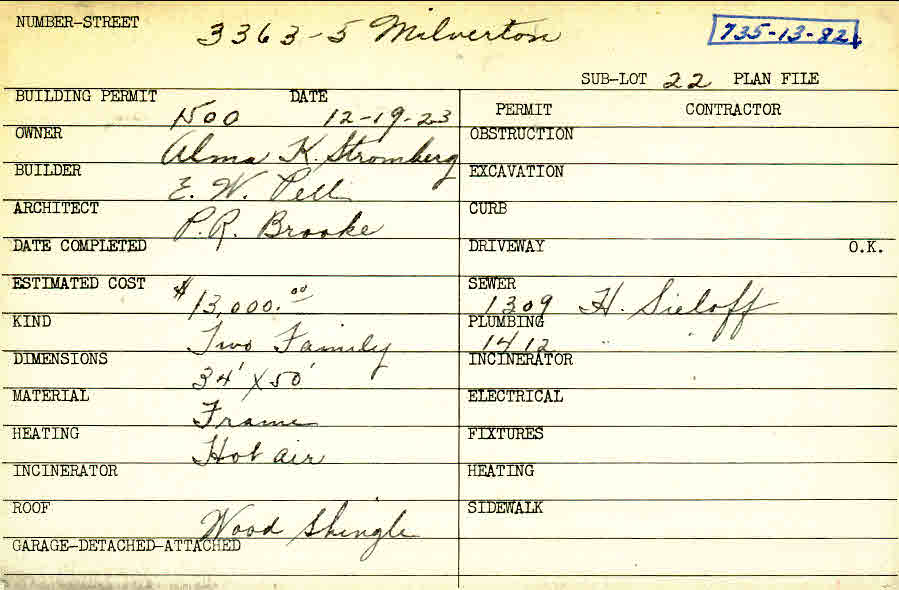 NUMBER-STREET 3363-5 Milverton 735-13-82
SUB-LOT 22 PLAN FILE
BUILDING PERMIT 1500 DATE 12-19-23
PERMIT CONTRACTOR
OWNER Alma K. Stromberg
OBSTRUCTION
BUILDER E. W. Pell
EXCAVATION
ARCHITECT P.R. Brooke
CURB
DATE COMPLETED
DRIVEWAY O.K.
ESTIMATED COST $13,000.00
SEWER 1309 H. Sieloff
KIND Two Family
PLUMBING 1412 "
DIMENSIONS 34' X 50'
INCINERATOR
MATERIAL Frame
ELECTRICAL
HEATING Hot air
FIXTURES
INCINERATOR
HEATING
ROOF Wood Shingle
SIDEWALK
GARAGE-DETACHED-ATTACHED